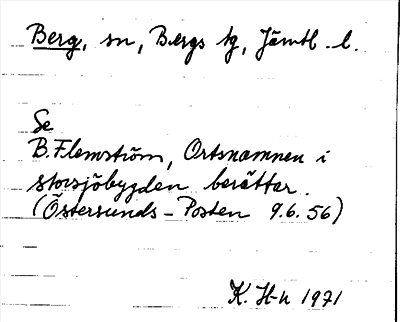 Berg, sn, Bergs tg, Jämtl. l.
Se
B. Flemström, Ortsnamnen i
storsjöbygden berättar.
(Östersunds-Posten 9.6.56)
K. H-n 1971